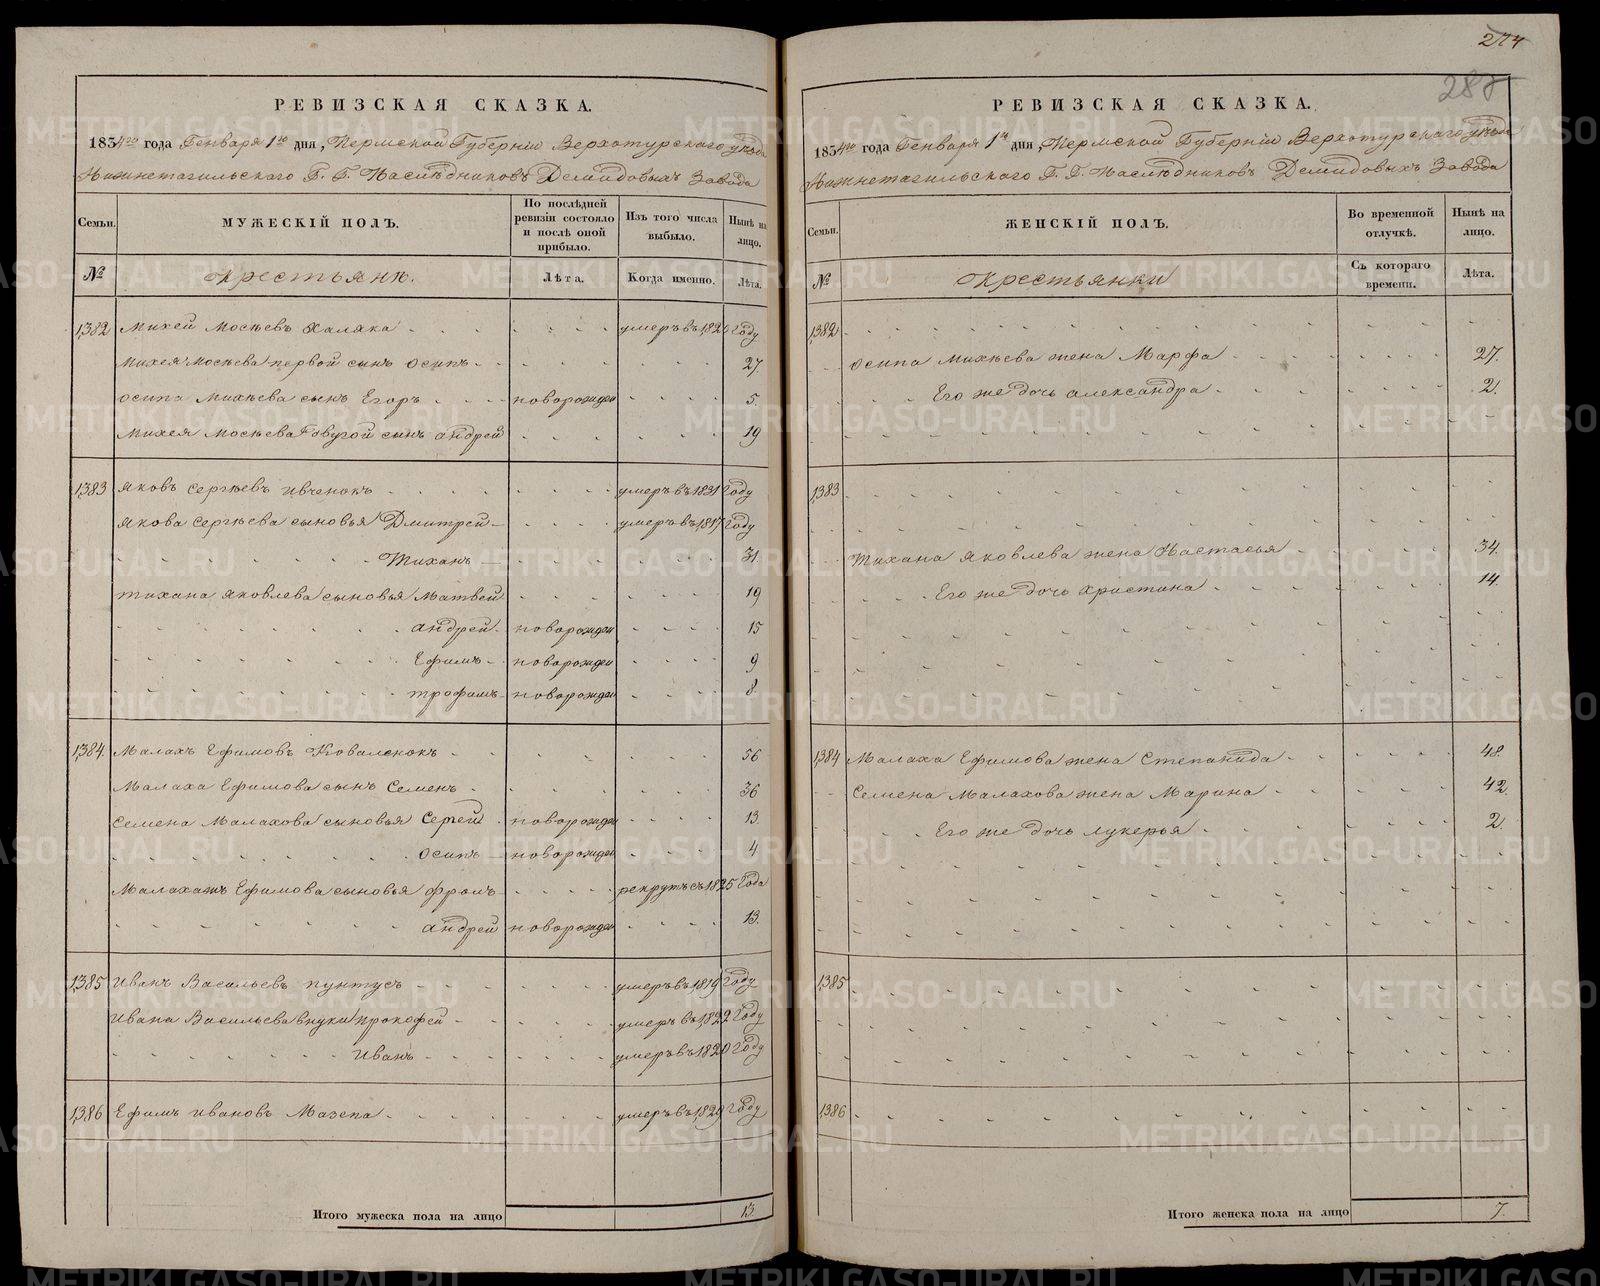 274
288
РЕВИЗСКАЯ СКАЗКА.
1834го года Генваря 1го дня, Пермской Губернiи Верхотурскаго уѣзда
Нижнетагильскаго Г. Г. Наслѣдниковъ Демидовыхъ Завода
Семьи.
МУЖЕСКIЙ ПОЛЪ.
По послѣдней ревизiи состояло и послѣ оной прибыло.
Изъ того числа выбыло.
Нынѣ на лицо.
№
Крестьянѣ.
Лѣта.
Когда именно.
Лѣта.
1382 Михей Мосѣевъ Халяка умеръ въ 182 Году
Михея Мосѣева первой сынъ Осипъ 27.
Осипа Михѣева сынъ Егоръ новорожден 5.
Михея Мосѣева другой сынъ Андрей 19
1383 Яковъ Сергѣевъ Ивченокъ умеръ въ 1831 Году
Якова Сергѣева сыновья Дмитрей умеръ въ 1817 Году
Тиханъ 31.
Тихана Яковлева сыновья Матвей 19
Андрей новорожден 15
Ефимъ новорожден 9
Трофимъ новорожден 8
1384 Малахъ Ефимовъ Коваленокъ 56
Малаха Ефимова сынъ Семенъ 36
Семена Малахова сыновья Сергей новорожден 13
Осипъ новорожден 4
Малаха Ефимова сыновья Фролъ рекрутъ съ 1825 Года
Андрей новорожден 13.
1385 Иванъ Васильевъ Пунтусъ умеръ въ 1819 Году
Ивана Васильева внуки Прокофей умеръ въ 1822 Году
Иванъ умеръ въ 1820 Году
1386 Ефимъ Ивановъ Мазепа умеръ въ 1829 Году
Итого мужеска пола на лицо 13
РЕВИЗСКАЯ СКАЗКА.
1834го года Генваря 1го дня, Пермской Губернiи Верхотурскаго уѣзда
Нижнетагильскаго Г. Г. Наслѣдниковъ Демидовыхъ Завода
Семьи.
ЖЕНСКIЙ ПОЛЪ.
Во временной отлучкѣ.
Нынѣ на лицо.
№
Крестьянки
Съ котораго времени.
Лѣта.
1382
Осипа Михѣева жена Марфа 27.
Его же дочь Александра 2.
1383
Тихана Яковлева жена Настасья 34.
Его же дочь Христина 14.
1384 Малаха Ефимова жена Степанида 48.
Семена Малахова жена Марина 42.
Его же дочь Лукерья 2.
1385
1386
Итого женска пола на лицо 7.
METRIKI.GASO-URAL.RU